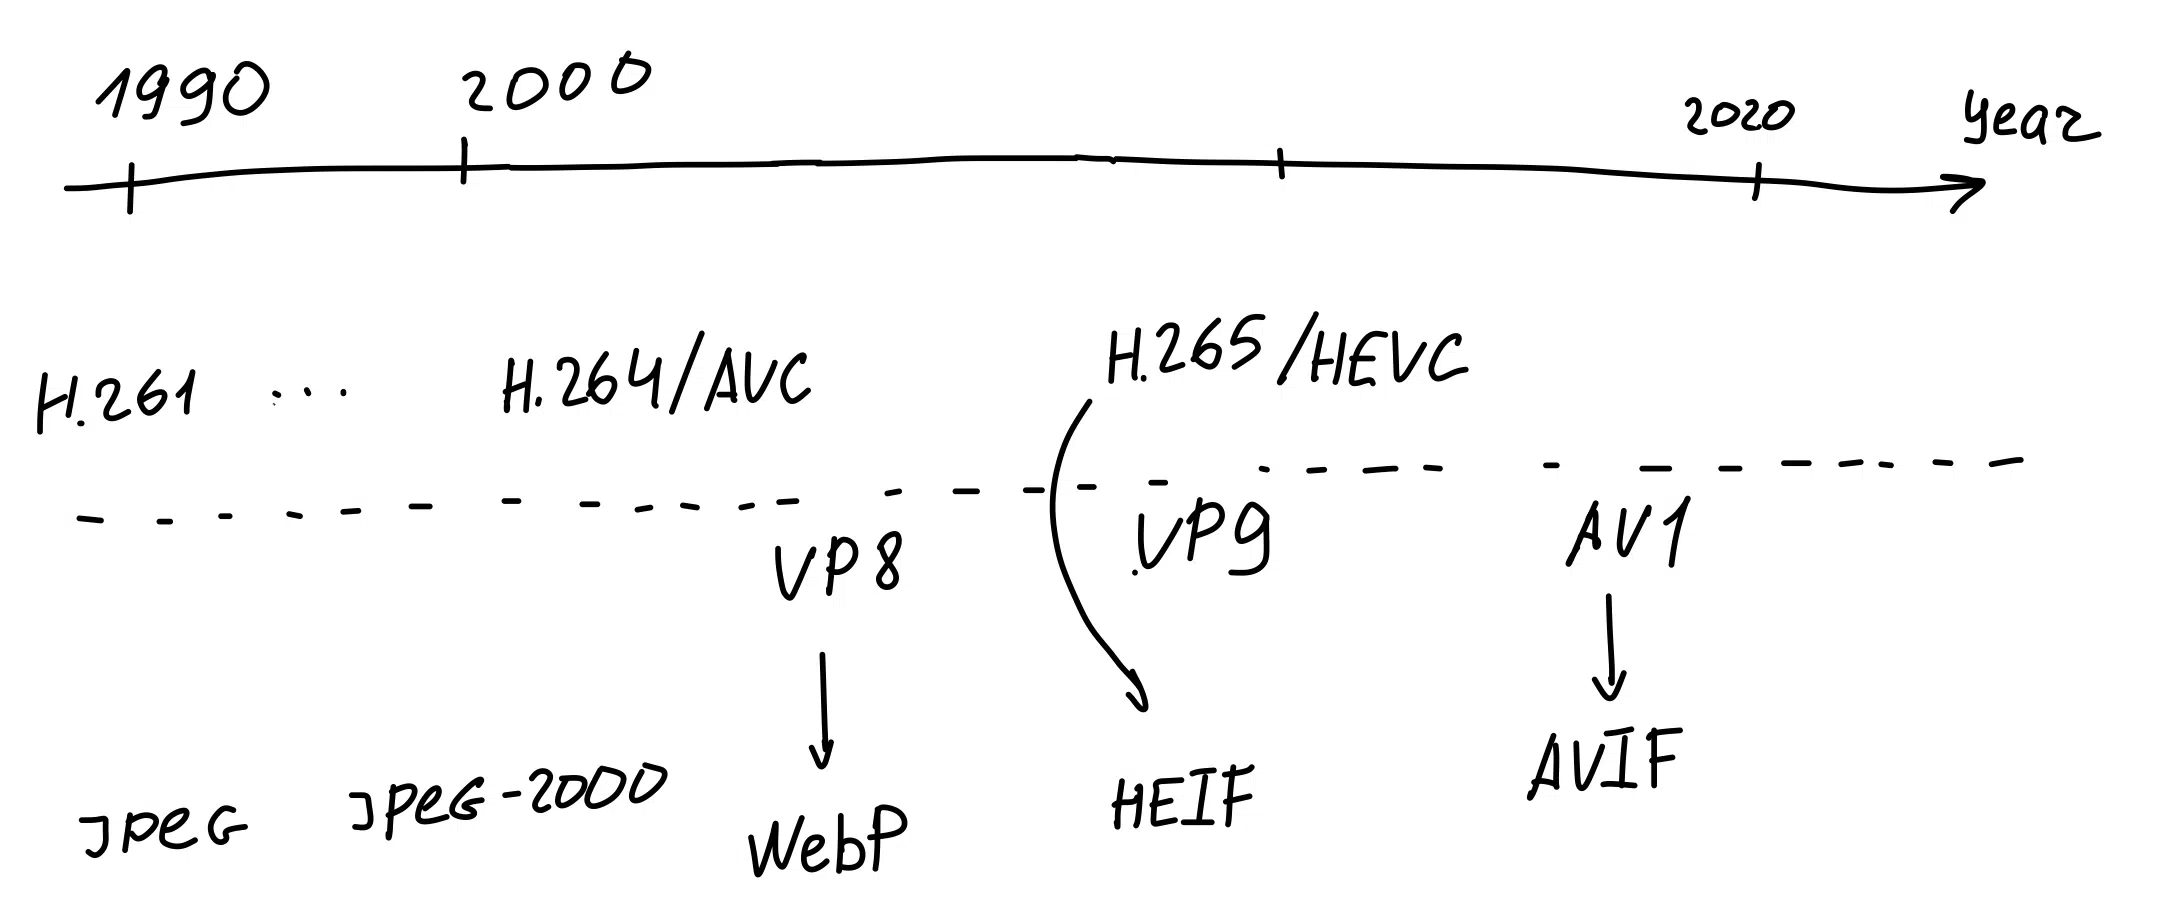 1990 2000 2020 year
H.261 ... H.264/AVC H.265/HEVC
VP8 VP9 AV1
JPEG JPEG-2000 WebP HEIF AVIF